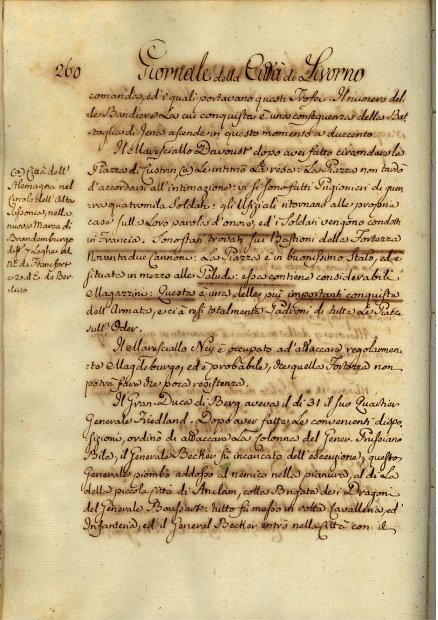 260 Giornale della Città di Livorno
comanda, ed i quali portavano questi Trofei. Il numero del-
le Bandiere la cui conquista è una conseguenza della Bat-
taglia di Jena ascende in questo momento a duecento.
Il Maresciallo Davoust dopo aver fatto circondare la
Piazza di Custrin (a) Le intimò La resa: La Piazza non tardò
d'accordarsi all'intimazione: vi si sono fatti Prigionieri di guer-
ra quattromila Soldati: gli Uffiziali ritornarono alle proprie
case sulla Loro parola d'onore, ed i Soldati vengono condotti
in Francia. Sonosi trovati sui Bastioni della Fortezza
Novanta due Cannoni. La Piazza è in buonissimo stato, ed è
situata in mezzo alle Paludi: essa contiene considerabili
Magazzini: Questa è una delle più importanti conquiste
dell'Armata, e ci à resi totalmente Padroni di tutte Le Piazze
sull'Oder.
Il Maresciallo Ney è occupato ad attaccare regolarmen-
te Magdeburgo, ed è probabile, che quella Fortezza non
potrà fare che poca resistenza.
Il Gran Duca di Berg aveva il dì 31 il suo Quartier
Generale Friedland. Dopo aver fatte Le convenienti dispo-
sizioni, ordinò di attaccare La Colonna del Gener. Prussiano
Bila, il Generale Becker fu incaricato dell'esecuzione, questo
Generale piombò addosso al nemico nella pianura, al di La
della piccola Città di Anclam, colla Brigata dei Dragoni
del Generale Boussart: tutto fu messo in rotta Cavalleria, ed
Infanteria, ed il General Becker entrò nella Città con il
(a) Città dell'
Alemagna nel
Circolo dell'Alta
Sassonia, nella
nuova Marca di
Brandemburgo
Leghe al
N. E. di Francfort
e 20 al E. di Ber-
lino